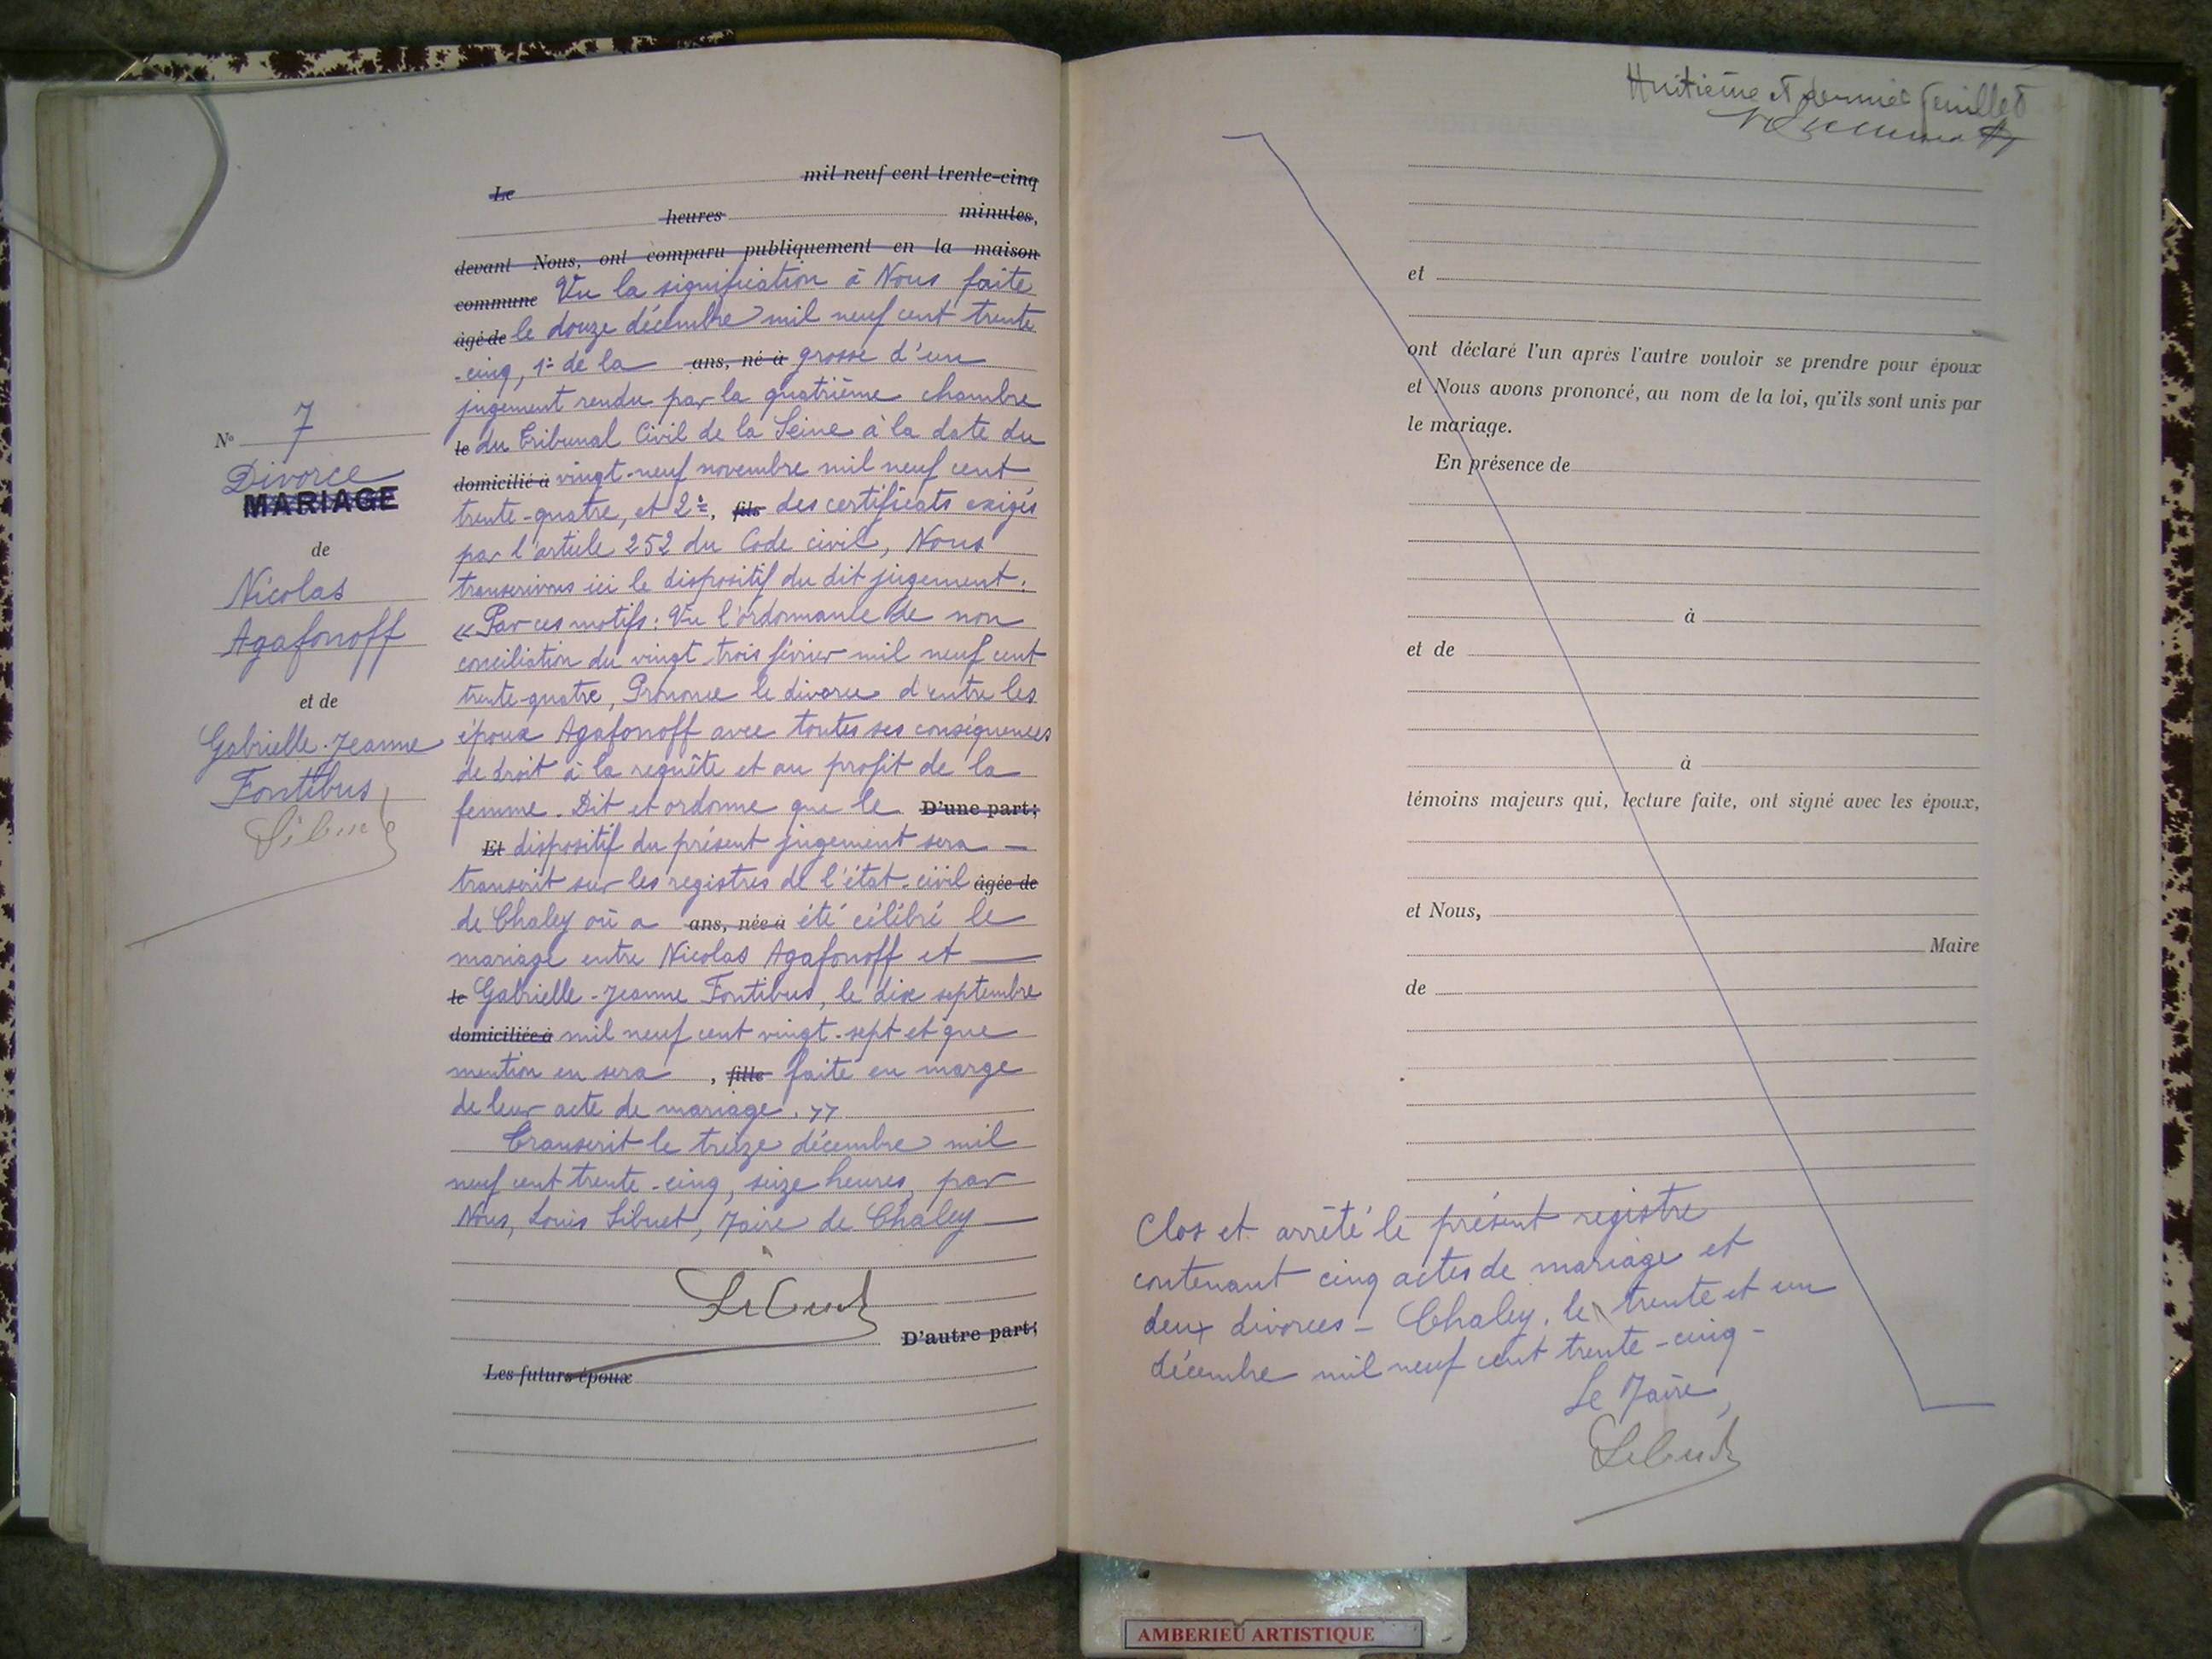 Le mil neuf cent trente-cinq
heures minutes,
devant Nous, ont comparu publiquement en la maison
commune Vu la signification à Nous faite
âgé de le douze décembre mil neuf cent trente
-cinq, 1º de la ans, né à grosse d'un
jugement rendu par la quatrième chambre
le du Tribunal Civil de la Seine à la date du
domicilié à vingt-neuf novembre mil neuf cent
trente-quatre, et 2º, fils des certificats exigés
par l'article 252 du Code civil, Nous
transcrivons ici le dispositif du dit jugement:
«Par ces motifs: Vu l'ordonnance de non
conciliation du vingt-trois février mil neuf cent
trente-quatre, Prononce le divorce d'entre les
époux Agafonoff avec toutes ses conséquences
de droit à la requête et au profit de la
femme. Dit et ordonne que le D'une part;
Et dispositif du présent jugement sera —
transcrit sur les registres de l'état-civil âgée de
de Chaley où a ans, née à été célébré le
mariage entre Nicolas Agafonoff et —
le Gabrielle-Jeanne Fontibus, le dix septembre
domiciliée à mil neuf cent vingt-sept et que
mention en sera , fille faite en marge
de leur acte de mariage. »
Transcrit le treize décembre mil
neuf cent trente-cinq, seize heures, par
Nous, Louis Sibuet, Maire de Chaley —
Sibuet
D'autre part;
Les futurs époux
Nº 7
Divorce
MARIAGE
de
Nicolas
Agafonoff
et de
Gabrielle-Jeanne
Fontibus
Sibuet
Huitième et dernier feuillet
et
ont déclaré l'un après l'autre vouloir se prendre pour époux
et Nous avons prononcé, au nom de la loi, qu'ils sont unis par
le mariage.
En présence de
à
et de
à
témoins majeurs qui, lecture faite, ont signé avec les époux,
et Nous,
Maire
de
Clos et arrêté le présent registre
contenant cinq actes de mariage et
deux divorces - Chaley, le trente et un
décembre mil neuf cent trente-cinq -
Le Maire,
Sibuet
AMBERIEU ARTISTIQUE